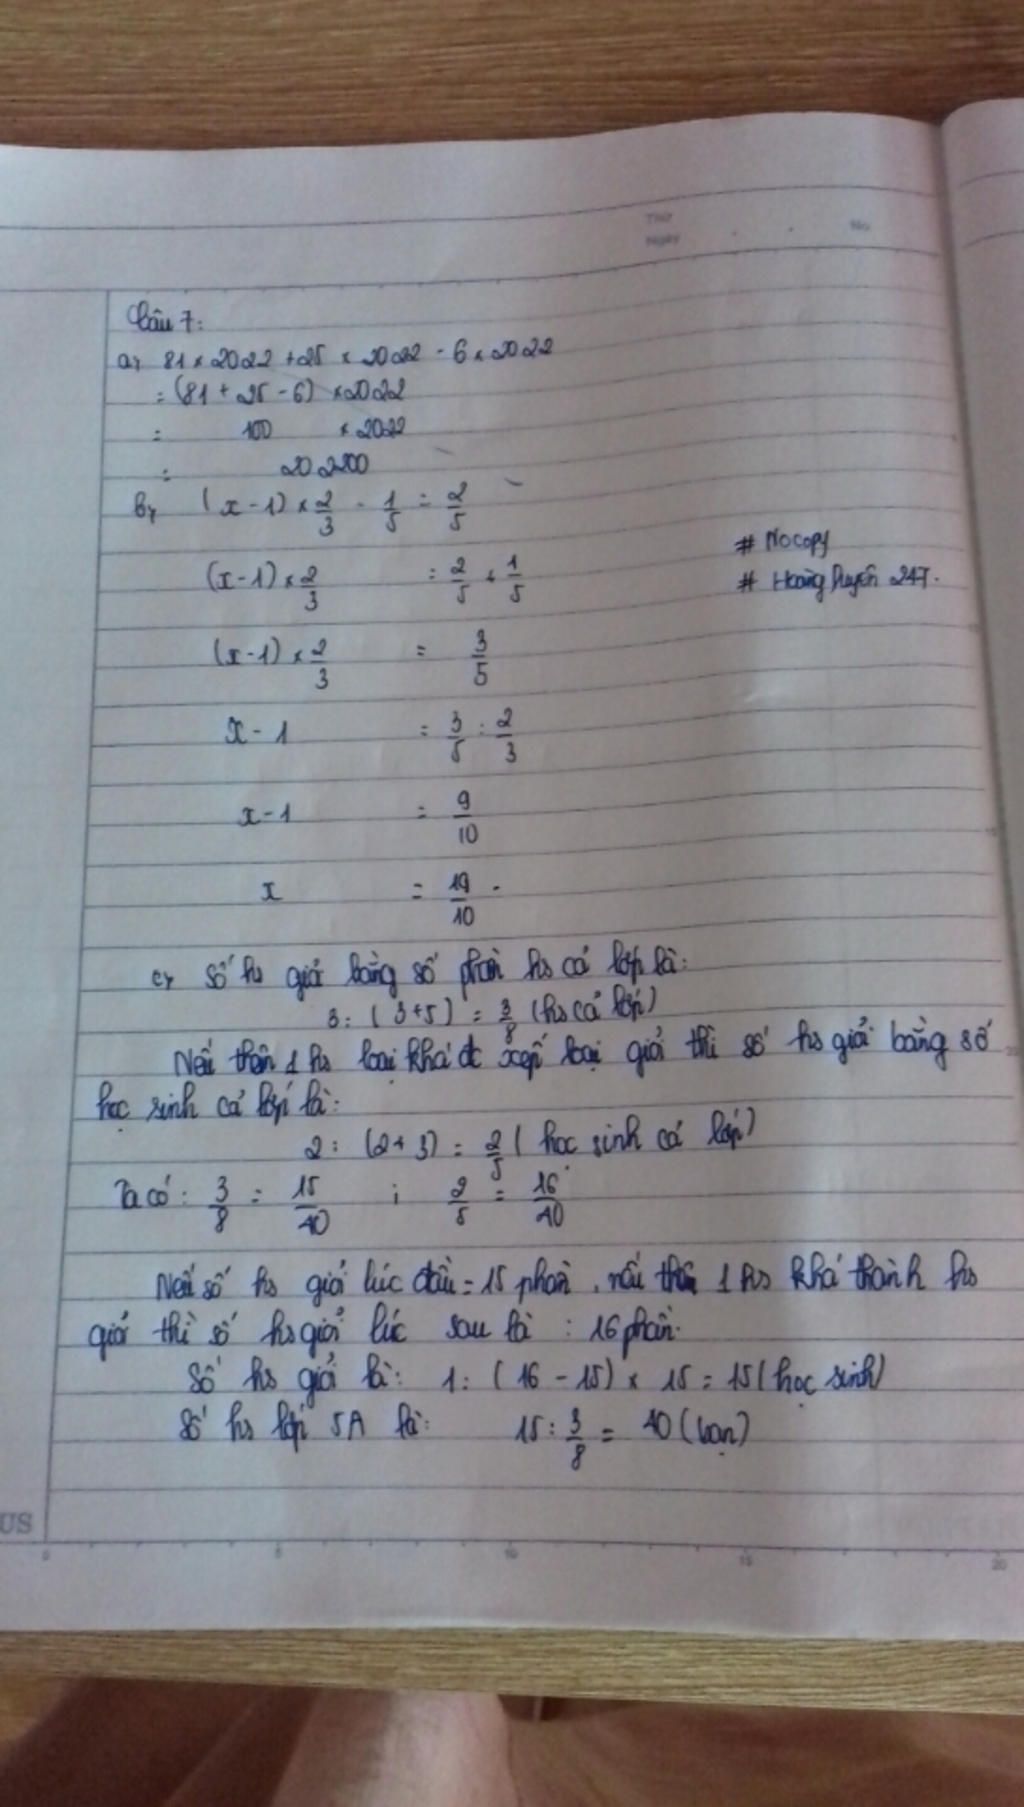 Thứ
Ngày
No
Câu 7:
a, 81 × 2022 + 25 × 2022 - 6 × 2022
= (81 + 25 - 6) × 2022
= 100 × 2022
= 202200
b, (x - 1) × 2/3 - 1/5 = 2/5
(x - 1) × 2/3 = 2/5 + 1/5
# Nocopy
# Hoàng Huyền 247.
(x - 1) × 2/3 = 3/5
x - 1 = 3/5 : 2/3
x - 1 = 9/10
x = 19/10.
c, Số hs giỏi bằng số phần hs cả lớp là:
3 : (3+5) = 3/8 (hs cả lớp)
Nếu thêm 1 hs loại khá đc xếp loại giỏi thì số hs giỏi bằng số
học sinh cả lớp là:
2 : (2+3) = 2/5 (học sinh cả lớp)
Ta có: 3/8 = 15/40 ; 2/5 = 16/40
Nếu số hs giỏi lúc đầu = 15 phần, nếu thêm 1 hs khá thành hs
giỏi thì số hs giỏi lúc sau là : 16 phần.
Số hs giỏi là: 1 : (16 - 15) × 15 = 15 (học sinh)
Số hs lớp 5A là: 15 : 3/8 = 40 (bạn)
US
0 5 10 15 20